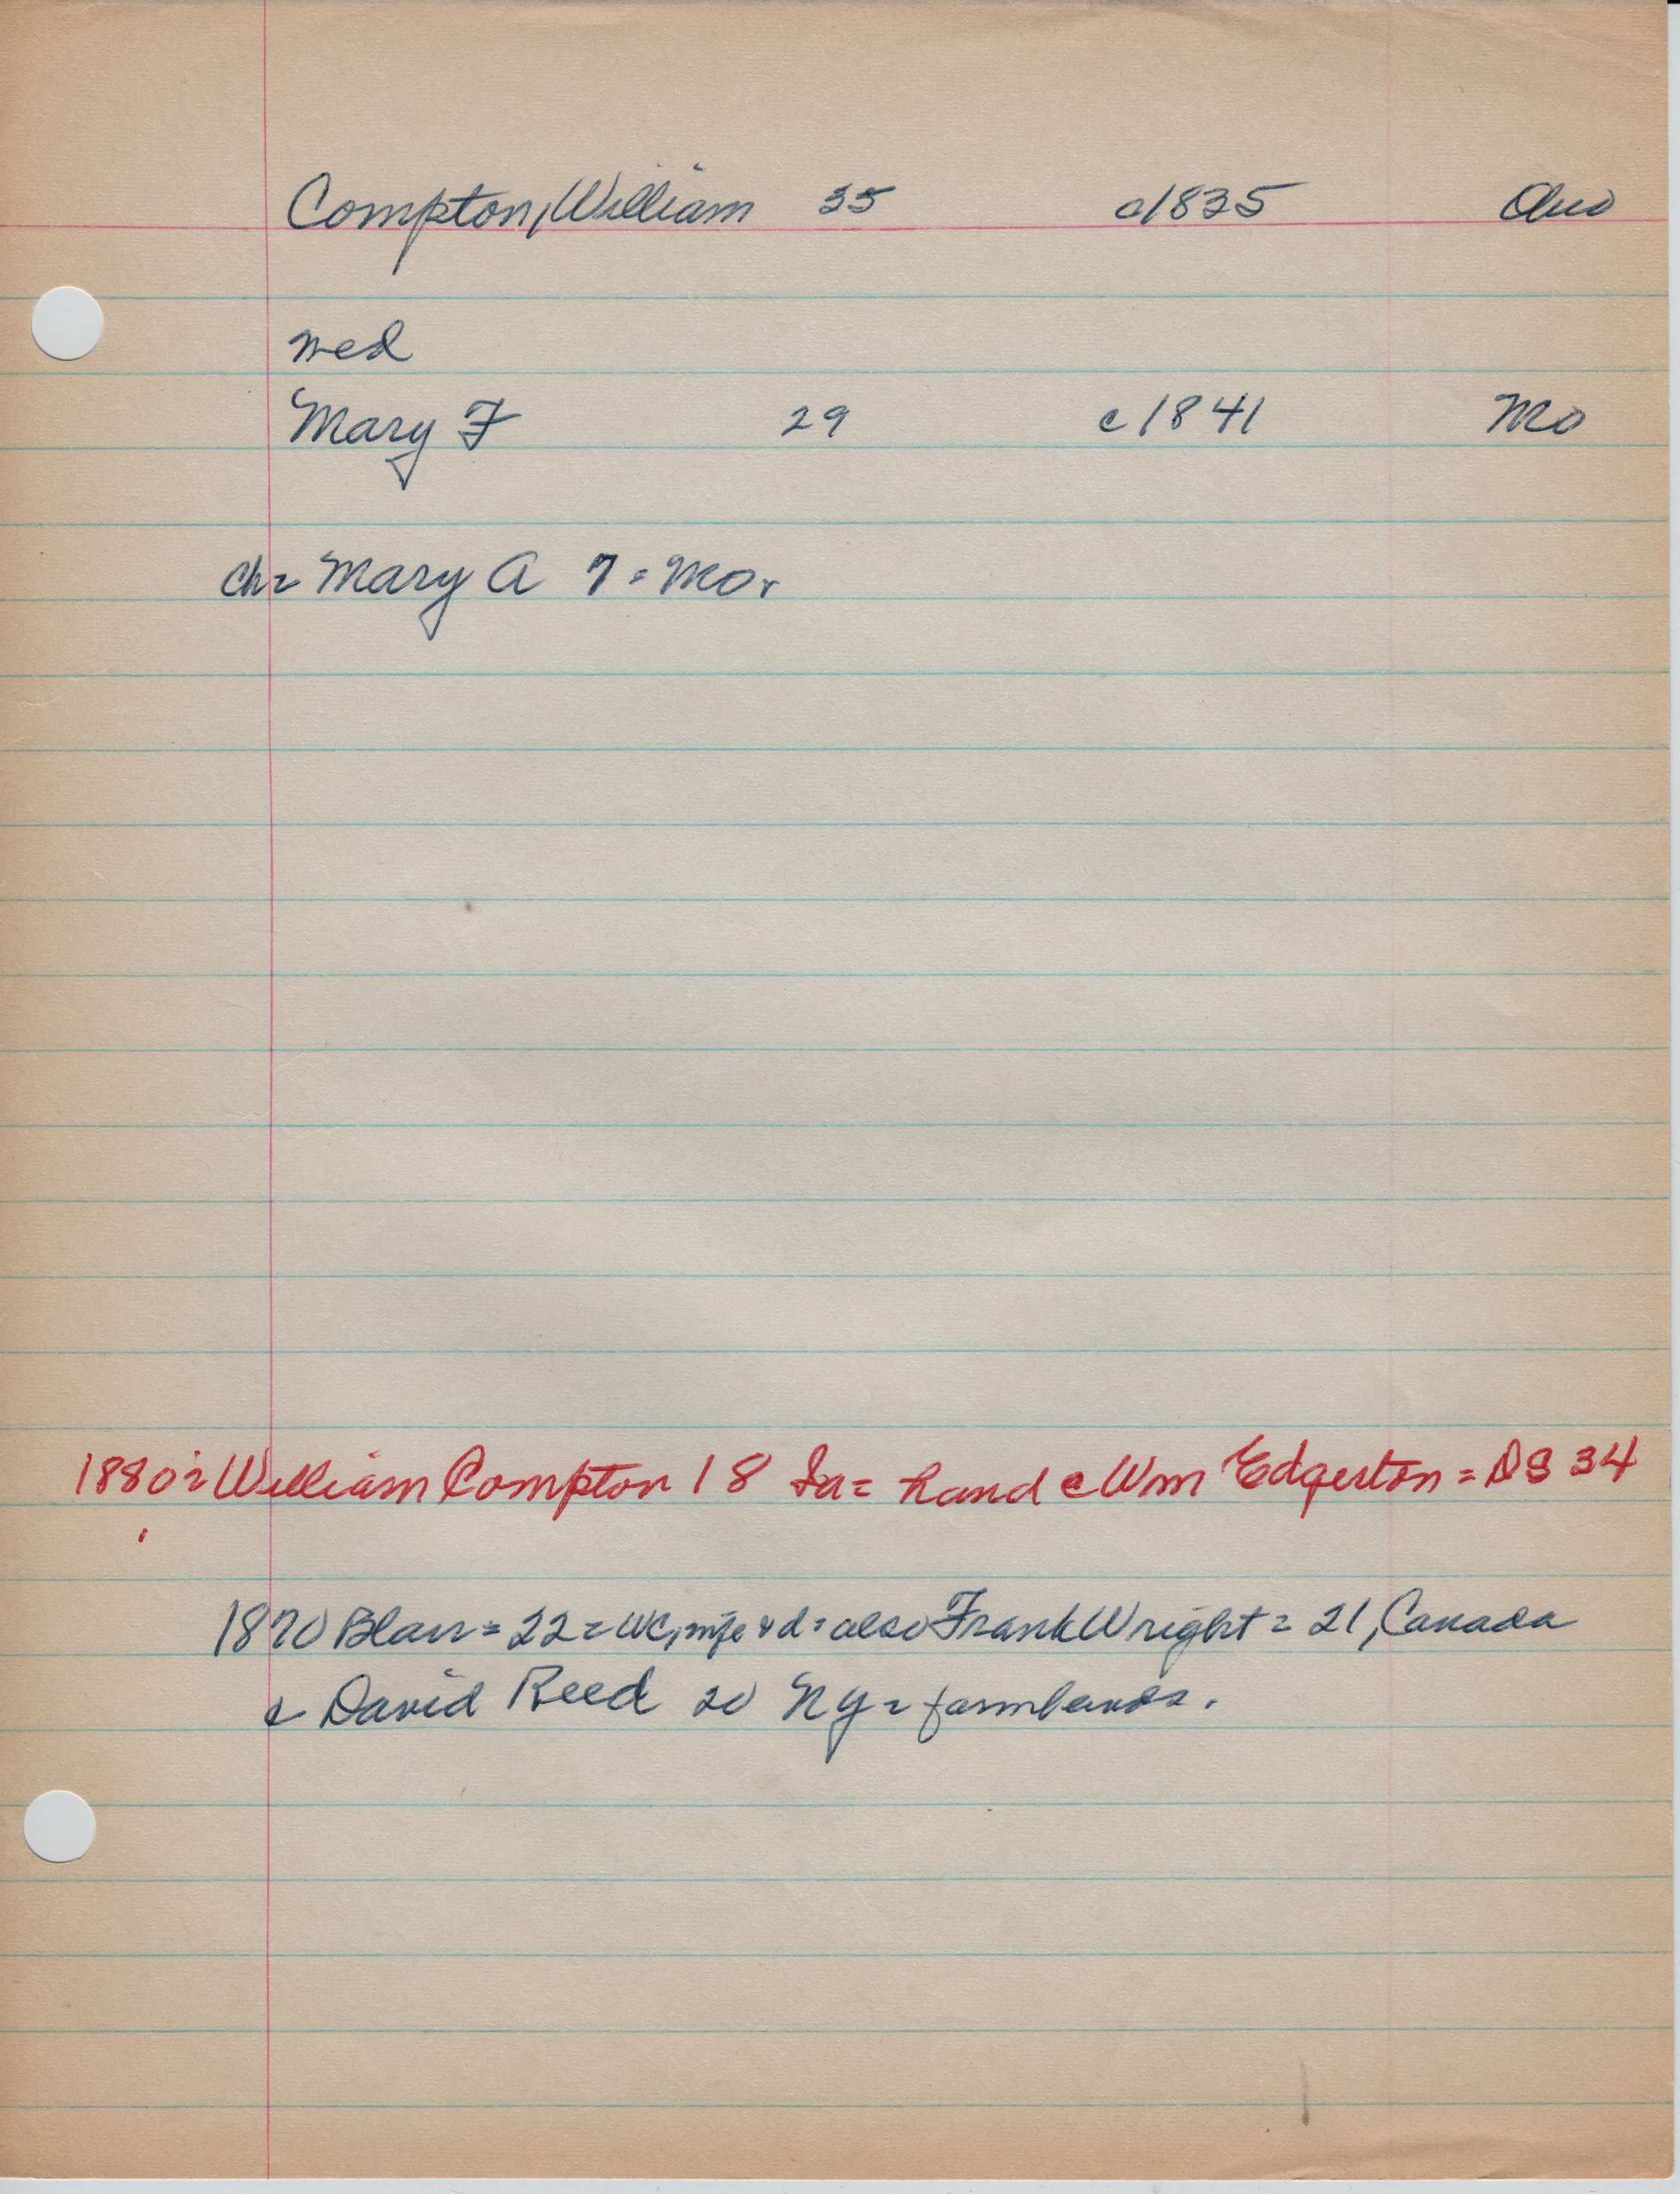 Compton, William 35 c1835 Ohio
wed
Mary F 29 c1841 Mo
ch = Mary A 7 = Mo.
1880 = William Compton 18 Ia = hand c Wm Edgerton = DS 34
1870 Blair = 22 = WC, wife & d = also Frank Wright = 21, Canada
& David Reed 20 NY = farmhands.